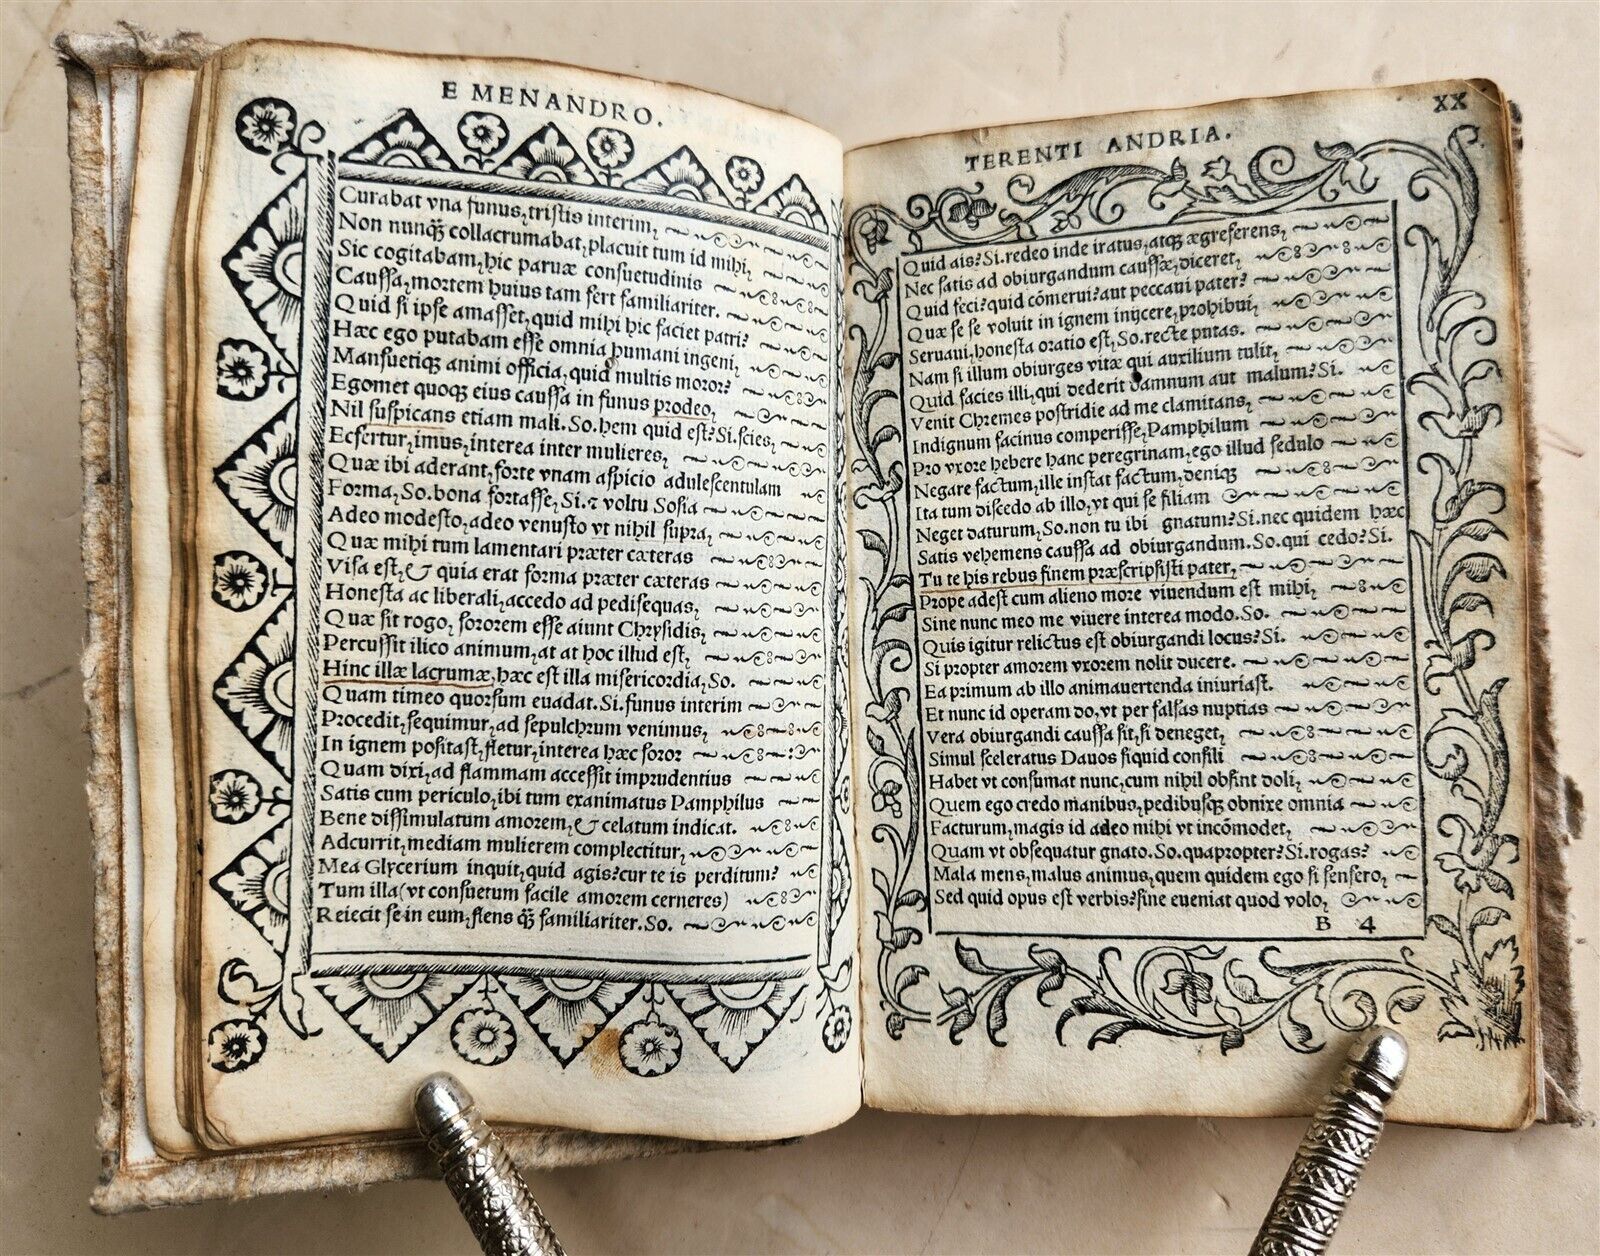 E MENANDRO.
Curabat vna funus, tristis interim,
Non nunq̃ȝ collacrumabat, placuit tum id mihi,
Sic cogitabam, hic paruæ consuetudinis
Caussa, mortem huius tam fert familiariter.
Quid si ipse amasset, quid mihi hic faciet patri?
Hæc ego putabam esse omnia humani ingeni,
Mansuetiqȝ animi officia, quid multis moror?
Egomet quoqȝ eius caussa in funus prodeo,
Nil suspicans etiam mali. So. hem quid est? Si. scies,
Ecfertur, imus, interea inter mulieres,
Quæ ibi aderant, forte vnam aspicio adulescentulam
Forma, So. bona fortasse, Si. ⁊ voltu Sosia
Adeo modesto, adeo venusto vt nihil supra,
Quæ mihi tum lamentari præter cæteras
Visa est, & quia erat forma præter cæteras
Honesta ac liberali, accedo ad pedisequas,
Quæ sit rogo, sororem esse aiunt Chrysidis,
Percussit ilico animum, at at hoc illud est,
Hinc illæ lacrumæ, hæc est illa misericordia, So.
Quam timeo quorsum euadat. Si. funus interim
Procedit, sequimur, ad sepulchrum venimus,
In ignem positast, fletur, interea hæc soror
Quam dixi, ad flammam accessit imprudentius
Satis cum periculo, ibi tum exanimatus Pamphilus
Bene dissimulatum amorem, & celatum indicat.
Adcurrit, mediam mulierem complectitur,
Mea Glycerium inquit, quid agis? cur te is perditum?
Tum illa (vt consuetum facile amorem cerneres)
Reiecit se in eum, flens q̃ȝ familiariter. So.
XX
TERENTI ANDRIA.
Quid ais? Si. redeo inde iratus, atqȝ ægreferens,
Nec satis ad obiurgandum caussæ, diceret,
Quid feci? quid cōmerui? aut peccaui pater?
Quæ se se voluit in ignem inijcere, prohibui,
Seruaui, honesta oratio est, So. recte putas.
Nam si illum obiurges vitæ qui auxilium tulit,
Quid facies illi, qui dederit damnum aut malum? Si.
Venit Chremes postridie ad me clamitans,
Indignum facinus comperisse, Pamphilum
Pro vxore hebere hanc peregrinam, ego illud sedulo
Negare factum, ille instat factum, deniqȝ
Ita tum discedo ab illo, vt qui se filiam
Neget daturum, So. non tu ibi gnatum? Si. nec quidem hæc
Satis vehemens caussa ad obiurgandum. So. qui cedo? Si.
Tu te his rebus finem præscripsisti pater,
Prope adest cum alieno more viuendum est mihi,
Sine nunc meo me viuere interea modo. So.
Quis igitur relictus est obiurgandi locus? Si.
Si propter amorem vxorem nolit ducere.
Ea primum ab illo animauertenda iniuriast.
Et nunc id operam do, vt per falsas nuptias
Vera obiurgandi caussa sit, si deneget,
Simul sceleratus Dauos siquid consili
Habet vt consumat nunc, cum nihil obsint doli,
Quem ego credo manibus, pedibusqȝ obnixe omnia
Facturum, magis id adeo mihi vt incōmodet,
Quam vt obsequatur gnato. So. quapropter? Si. rogas?
Mala mens, malus animus, quem quidem ego si sensero,
Sed quid opus est verbis? sine eueniat quod volo,
B 4